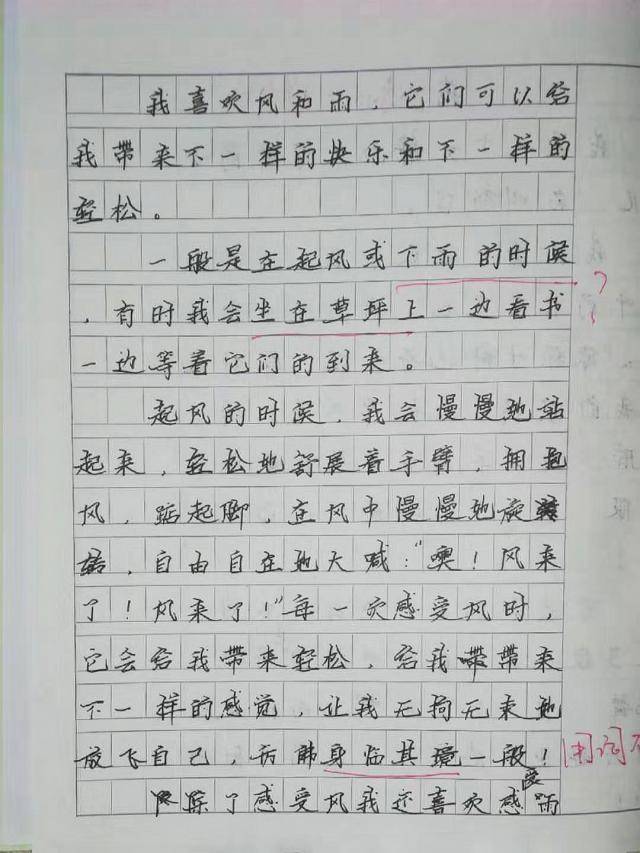 我喜欢风和雨，它们可以给
我带来不一样的快乐和不一样的
轻松。
一般是在起风或下雨的时候
，有时我会坐在草坪上一边看书
一边等着它们的到来。
起风的时候，我会慢慢地站
起来，轻松地舒展着手臂，拥抱
风，踮起脚，在风中慢慢地旋转
，自由自在地大喊："噢！风来
了！风来了！"每一次感受风时，
它会给我带来轻松，给我带来
不一样的感觉，让我无拘无束地
放飞自己，仿佛身临其境一般！
用词不
除了感受风我还喜欢感受雨